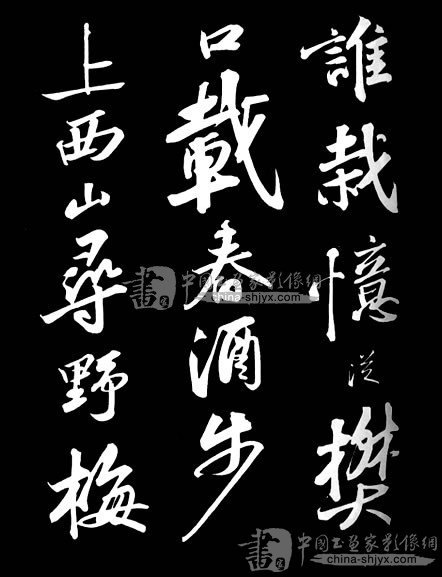 誰栽憶從樊
口載春酒步
上西山尋野梅
書 中国书画家影像網
china-shjyx.com
書 中国书画家影像網
www.china-shjyx.com